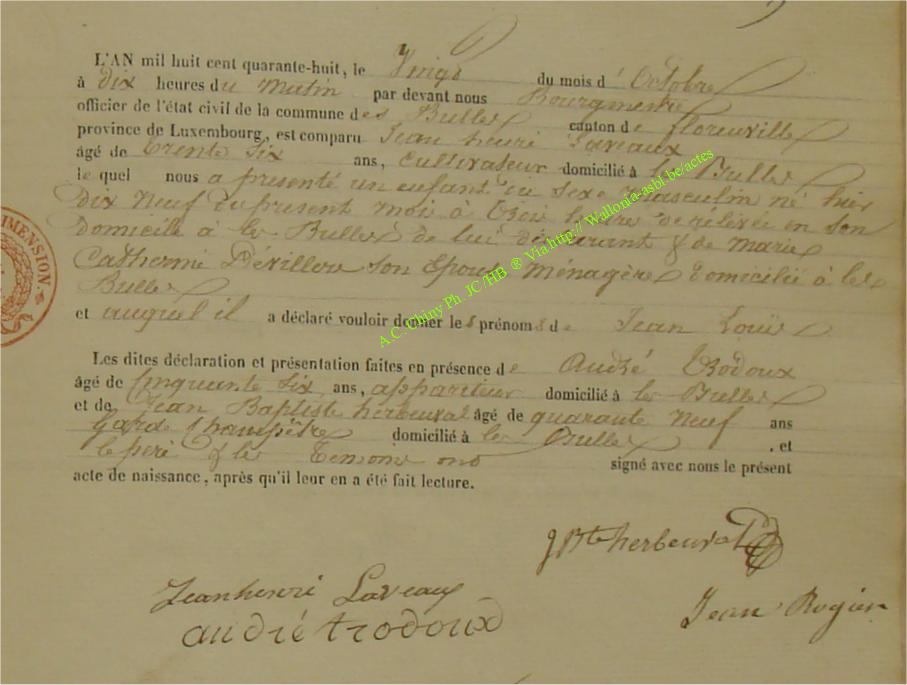 L'AN mil huit cent quarante-huit, le Vingt du mois d' Octobre
à Dix heures du Matin par devant nous Bourgmestre
officier de l'état civil de la commune des Bulles canton de florenville
province de Luxembourg, est comparu Jean henri Laveaux
âgé de trente Six ans, Cultivateur domicilié à les Bulles
le quel nous a présenté un enfant du sexe Masculin né hier
Dix Neuf du présent mois à de relevée en son
Domicile à les Bulles de lui déclarant & de marie
Catherine Devillers son Epouse Ménagère Domicilié à les
Bulles
et auquel il a déclaré vouloir donner les prénoms de Jean Louis
Les dites déclaration et présentation faites en présence de André trodoux
âgé de Cinquante Six ans, appariteur domicilié à les Bulles
et de Jean Baptiste herbeuval âgé de quarante Neuf ans
Garde Champêtre domicilié à les Bulles . et
le peré & les Temoins ont signé avec nous le présent
acte de naissance, après qu'il leur en a été fait lecture.
jBte herbeuval
Jeanhenri Laveaux
Jean Rogier
andré trodoux
DIMENSION.
A.C. Chiny Ph. JC/HB ® Via http:// Wallonia-asbl.be/actes